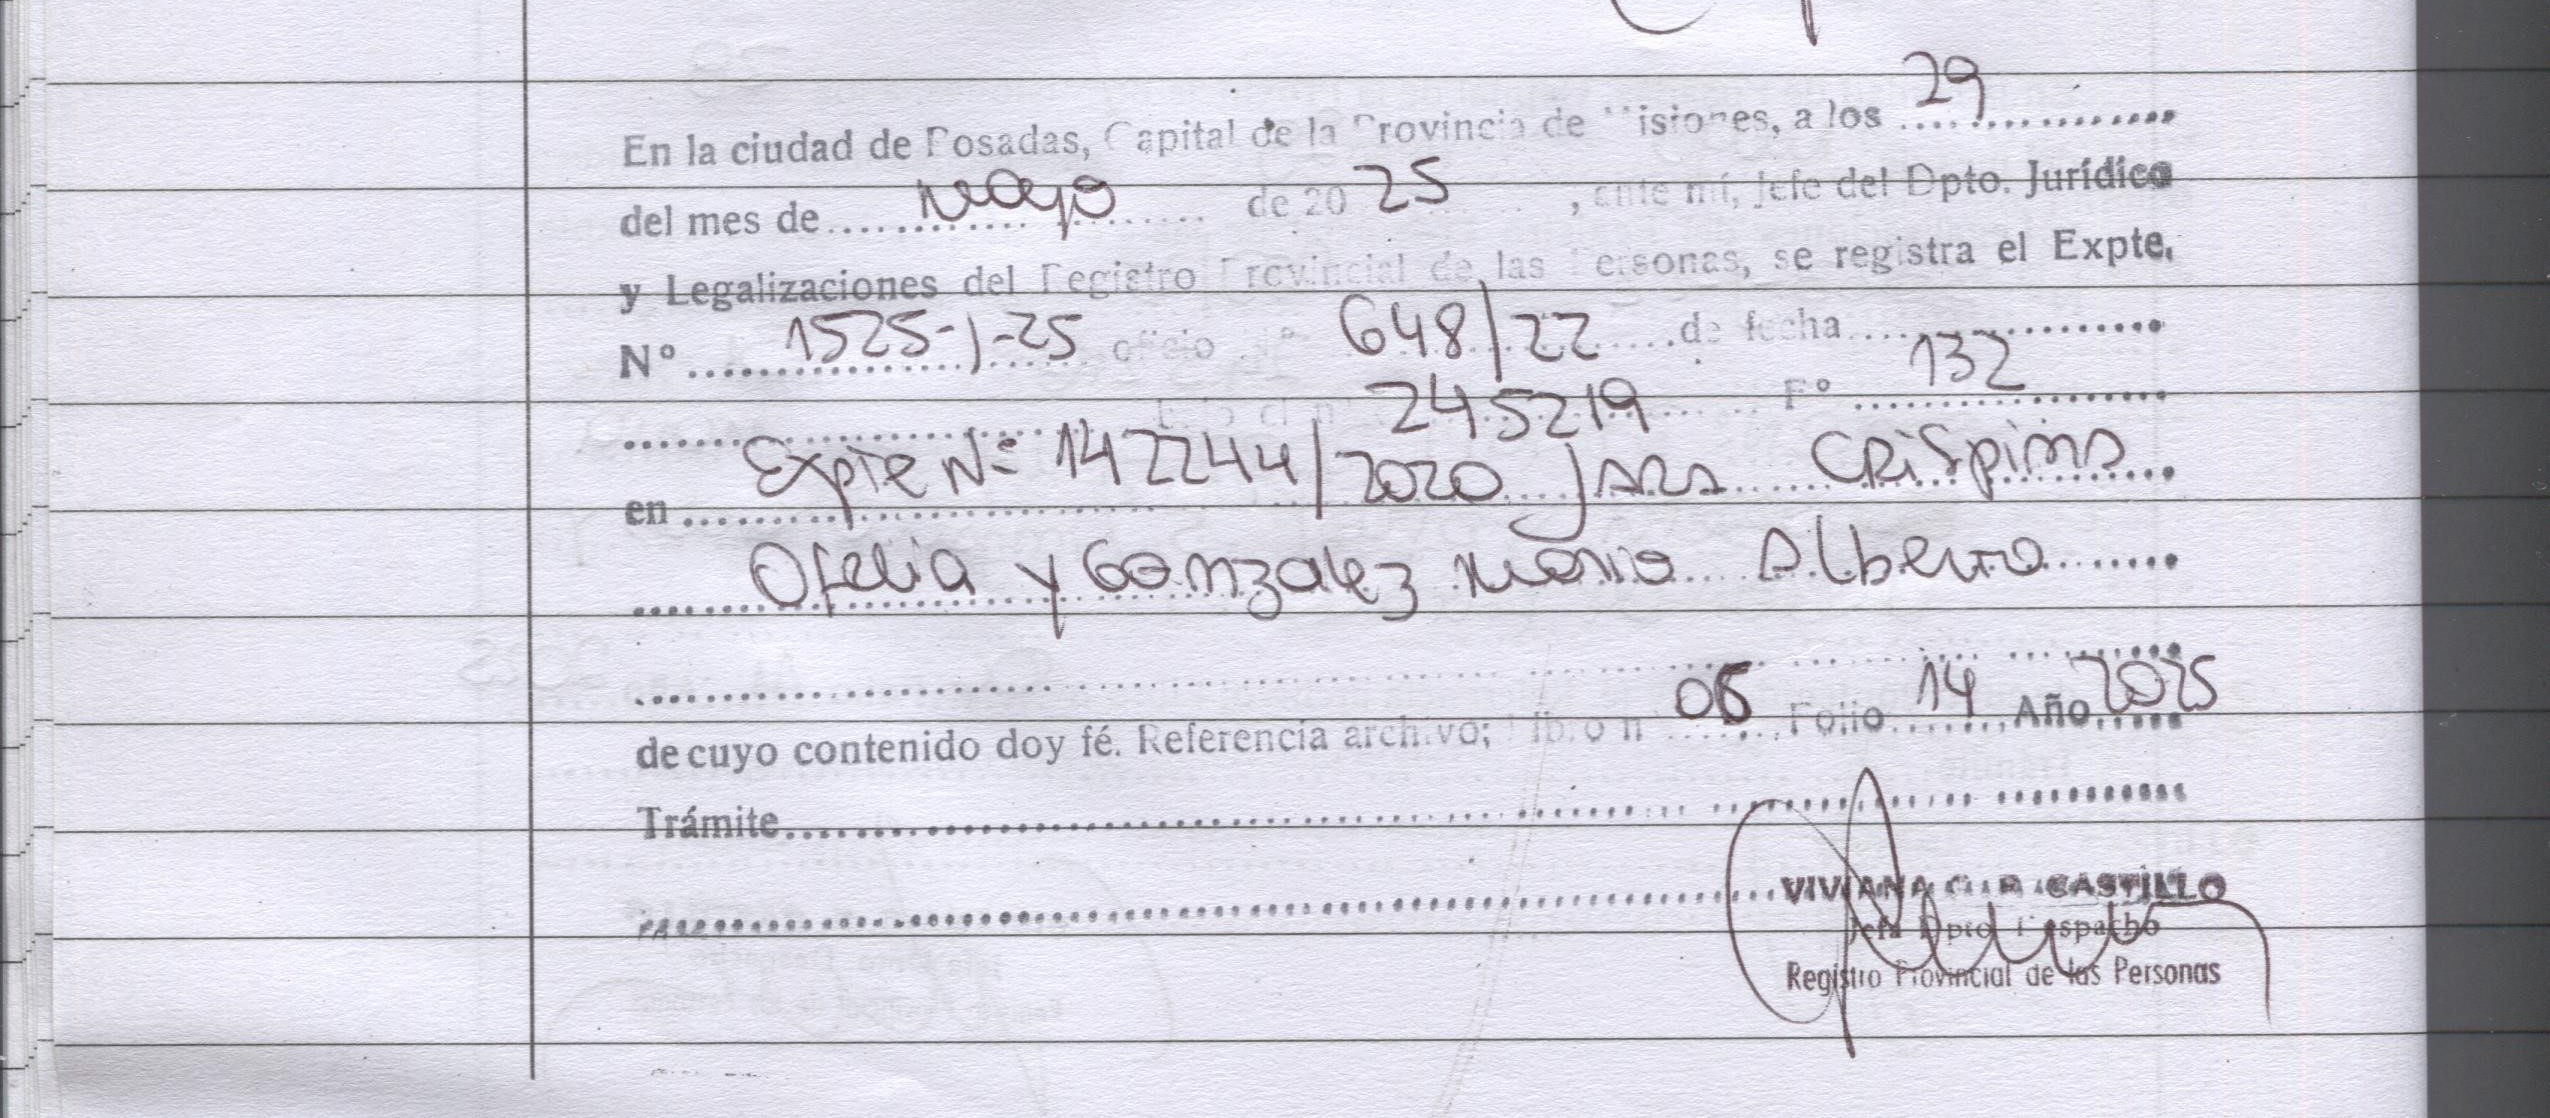 En la ciudad de Posadas, Capital de la Provincia de Misiones, a los 29
del mes de Mayo de 20 25, ante mí, Jefe del Dpto. Jurídico
y Legalizaciones del Registro Provincial de las Personas, se registra el Expte.
N° 1525-J-25 oficio N° 648/22 de fecha
245219 F° 132
en Expte N° 142244/2020 Jara Crispina
Ofelia y Gonzalez Mario Alberto
de cuyo contenido doy fé. Referencia archivo; Libro n° 06 Folio 14 Año 2025
Trámite
VIVIANA CASTILLO
Jefa Dpto Despacho
Registro Provincial de las Personas